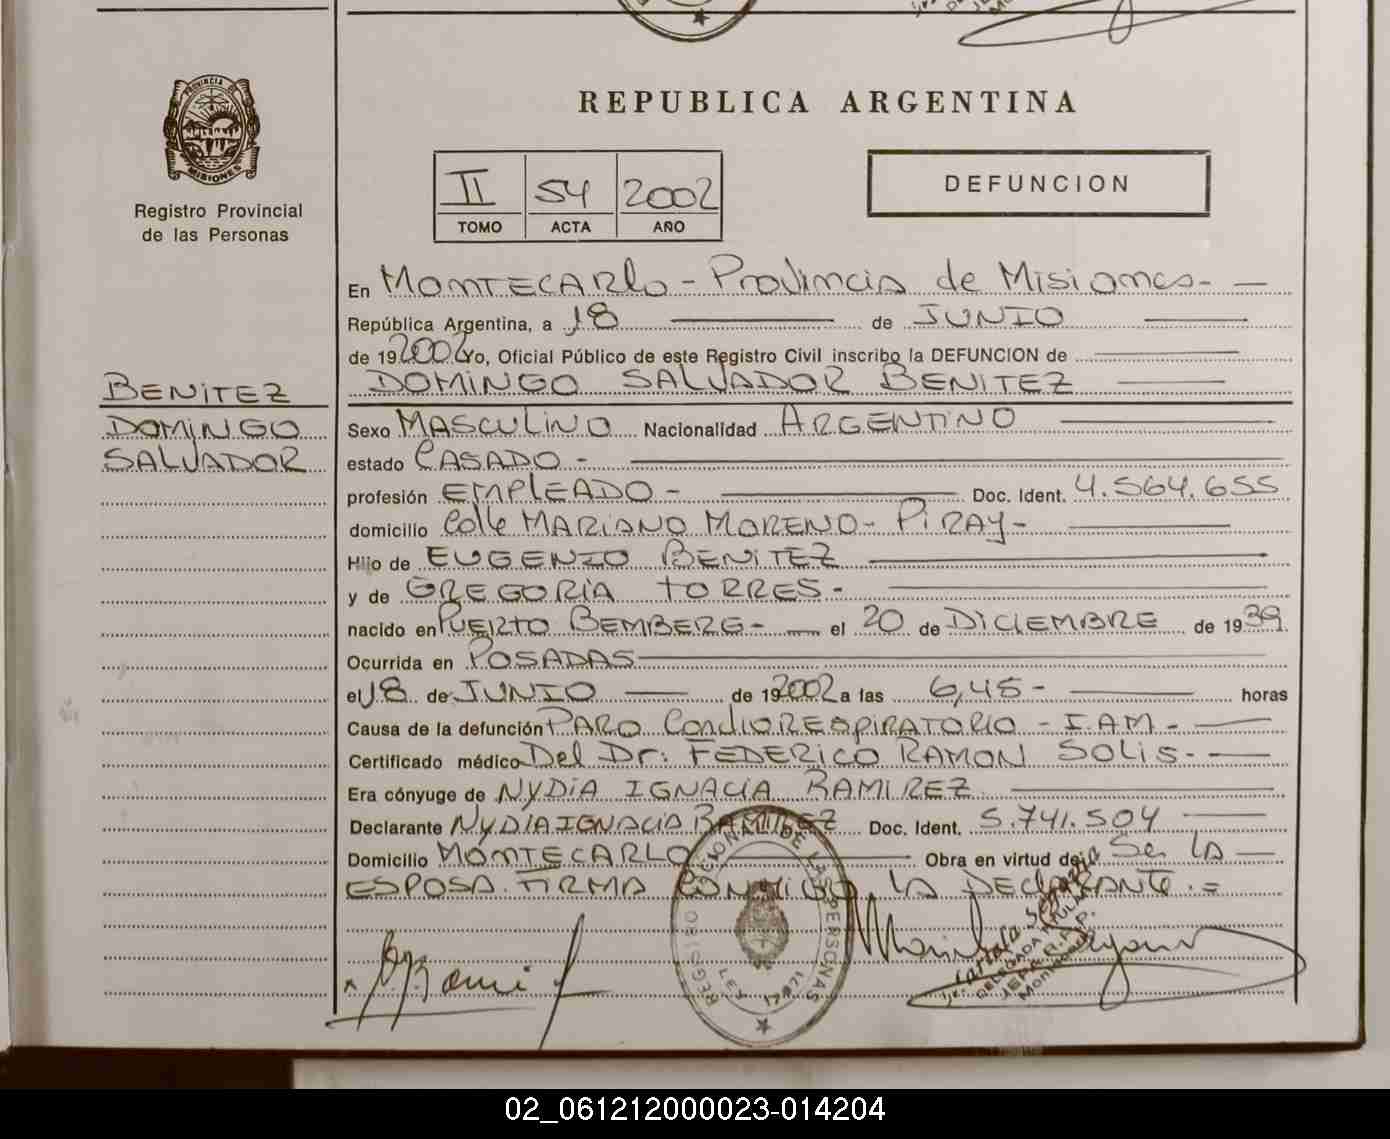 REPUBLICA ARGENTINA
PROVINCIA DE
MISIONES
Registro Provincial
de las Personas
II 54 2002
TOMO ACTA AÑO
DEFUNCION
En MONTECARlo - Provincia de Misiones -
República Argentina, a 18 de JUNIO
de 19 2002 Yo, Oficial Público de este Registro Civil inscribo la DEFUNCION de
DOMINGO SALVADOR BENITEZ
BENITEZ
DOMINGO
SALVADOR
Sexo MASCULINO Nacionalidad ARGENTINO
estado CASADO -
profesión EMPLEADO - Doc. Ident. 4.564.655
domicilio Calle MARIANO MORENO - PIRAY -
Hijo de EUGENIO BENITEZ
y de GREGORIA TORRES -
nacido en PUERTO BEMBERG - el 20 de DICIEMBRE de 1939
Ocurrida en POSADAS
el 18 de JUNIO de 19 2002 a las 6,45 - horas
Causa de la defunción PARO CardioRESPIRATORIO - I.AM -
Certificado médico Del Dr: FEDERICO RAMON SOLIS -
Era cónyuge de NYDIA IGNACIA RAMIREZ
Declarante NYDIA IGNACIA RAMIREZ Doc. Ident. 5.741.504
Domicilio MONTECARLO Obra en virtud de Ser LA
ESPOSA. FIRMA CONMIGO LA DECLARANTE. =
REGISTRO NACIONAL DE LAS PERSONAS
LEY 17671
DELEGADA TITULAR
Montecarlo
02_061212000023-014204